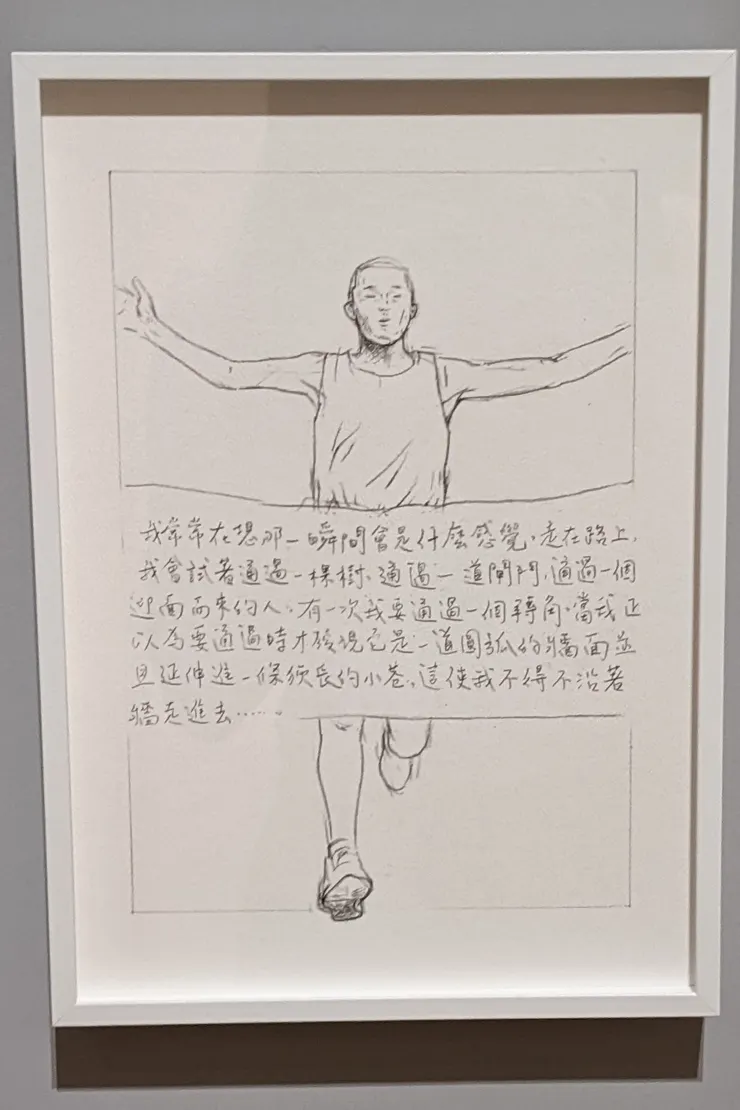 我常常在想那一瞬間會是什麼感覺,走在路上,
我會試著通過一棵樹、通過一道閘門,通過一個
迎面而來的人。有一次我要通過一個轉角,當我正
以為要通過時才發現它是一道圓弧的牆面並
且延伸進一條須長的小巷,這使我不得不沿著
牆走進去……